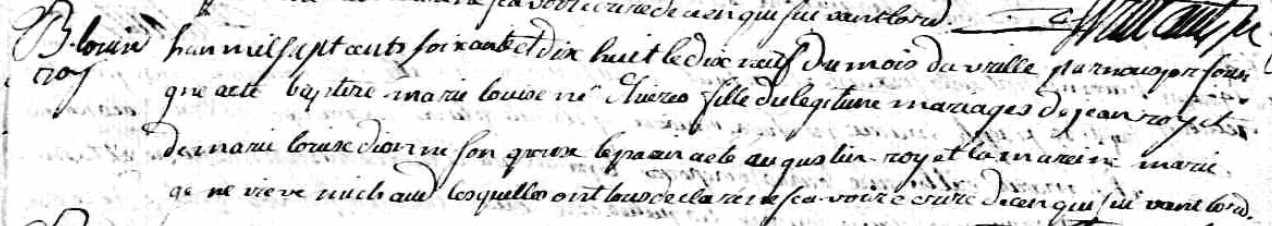 ne sca voir ecrire de ce en qui sui vant lord.
B. louise
roy
lan mil sept cents soixante et dix huit le dix neuf du mois da vrille par nous pr sous
que a ete baptise marie louise né d'hiere fille du legitime mariages de jean roy et
de marie louise dionne son epouse le parain a ete augustin roy et la mareine marie
ge ne vieve michaud lesquelles ont tous declare ne sca voir ecrire de ce en qui sui vant lord.